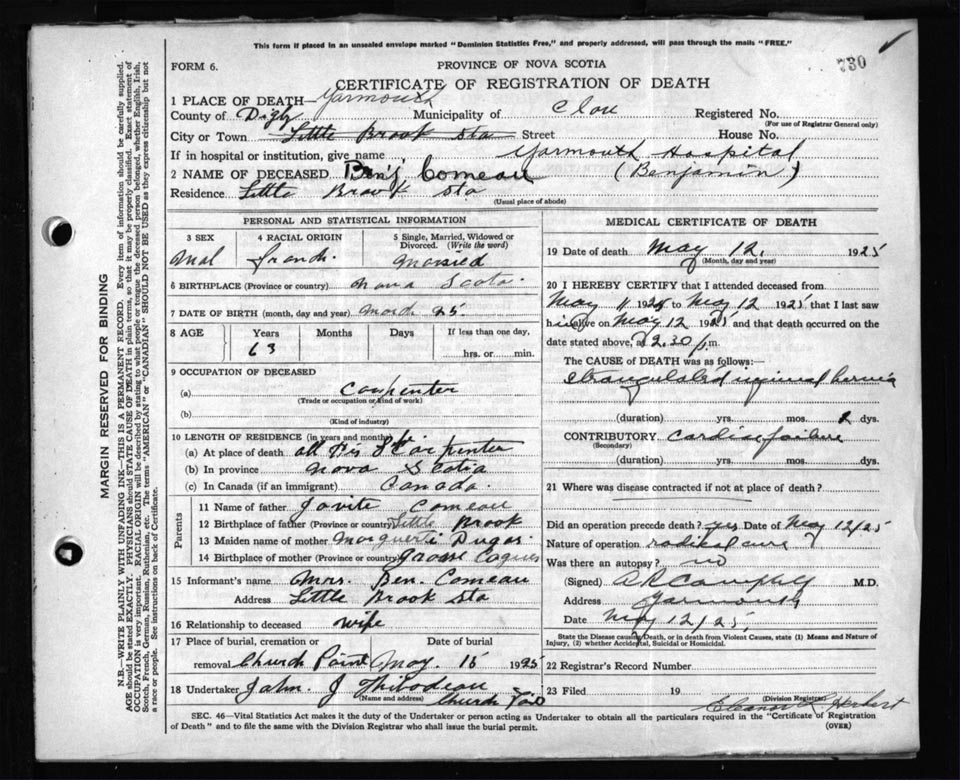 This form if placed in an unsealed envelope marked "Dominion Statistics Free," and properly addressed, will pass through the mails "FREE."
730
FORM 6.
PROVINCE OF NOVA SCOTIA
CERTIFICATE OF REGISTRATION OF DEATH
1 PLACE OF DEATH— Yarmouth
County of Digby Municipality of Clare Registered No.
(For use of Registrar General only)
City or Town Little Brook Sta Street House No.
If in hospital or institution, give name Yarmouth Hospital
2 NAME OF DECEASED Benj Comeau (Benjamin)
Residence Little Brook Sta
(Usual place of abode)
PERSONAL AND STATISTICAL INFORMATION
3 SEX 4 RACIAL ORIGIN 5 Single, Married, Widowed or Divorced. (Write the word)
Mal french Married
6 BIRTHPLACE (Province or country) Nova Scotia
7 DATE OF BIRTH (month, day and year) March 25
8 AGE Years Months Days If less than one day,
63 hrs. or min.
9 OCCUPATION OF DECEASED
(a) Carpenter
(Trade or occupation or kind of work)
(b)
(Kind of industry)
10 LENGTH OF RESIDENCE (in years and months)
(a) At place of death all his life Carpenter
(b) In province Nova Scotia
(c) In Canada (if an immigrant) Canada
Parents
11 Name of father Javite Comeau
12 Birthplace of father (Province or country) Little Brook
13 Maiden name of mother Marguerite Dugas
14 Birthplace of mother (Province or country) Grosse Coques
15 Informant's name Mrs. Ben. Comeau
Address Little Brook Sta
16 Relationship to deceased wife
17 Place of burial, cremation or Date of burial
removal Church Point May 15 1925
18 Undertaker John J Thibodeau
(Name and address) Church Point
MEDICAL CERTIFICATE OF DEATH
19 Date of death May 12, 1925
(Month, day and year)
20 I HEREBY CERTIFY that I attended deceased from
May 11 1925 to May 12 1925 that I last saw
him alive on May 12 1925 and that death occurred on
date stated above, at 2.30 p.m.
The CAUSE OF DEATH was as follows:
strangulated inguinal hernia
(duration) yrs. mos. 2 dys.
CONTRIBUTORY cardiac failure
(Secondary)
(duration) yrs. mos. dys.
21 Where was disease contracted if not at place of death?
Did an operation precede death? yes Date of May 12/25
Nature of operation radical cure
Was there an autopsy? no
(Signed) A R Campbell M.D.
Address Yarmouth
Date May 12/25
State the Disease causing Death, or in death from Violent Causes, state (1) Means and Nature of Injury, (2) whether Accidental, Suicidal or Homicidal.
22 Registrar's Record Number
23 Filed 19
(Division Registrar)
Eleanor L. Herbert
SEC. 46—Vital Statistics Act makes it the duty of the Undertaker or person acting as Undertaker to obtain all the particulars required in the "Certificate of Registration
of Death" and to file the same with the Division Registrar who shall issue the burial permit. (OVER)
MARGIN RESERVED FOR BINDING
N.B.—WRITE PLAINLY WITH UNFADING INK—THIS IS A PERMANENT RECORD. Every item of information should be carefully supplied.
AGE should be stated EXACTLY. PHYSICIANS should STATE CAUSE OF DEATH in plain terms, so that it may be properly classified. Exact statement of
OCCUPATION is very important. RACIAL ORIGIN will be described by stating to what people or tongue the deceased person belonged, whether English, Irish,
Scotch, French, German, Russian, Ruthenian, etc. The terms "AMERICAN" or "CANADIAN" SHOULD NOT BE USED as they express citizenship but not
a race or people. See instructions on back of Certificate.